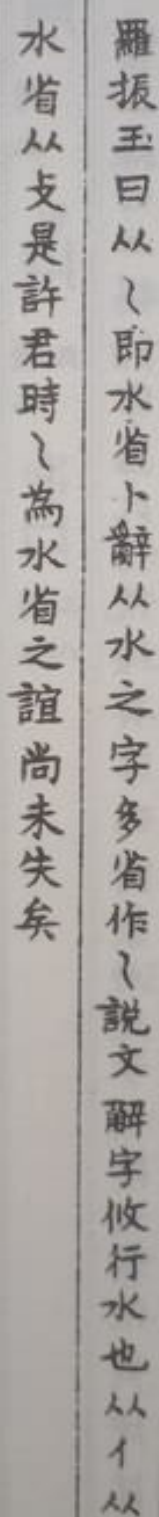 羅振玉曰从㇀即水省卜辭从水之字多省作㇀說文解字攸行水也从亻从
水省从攴是許君時㇀為水省之誼尚未失矣